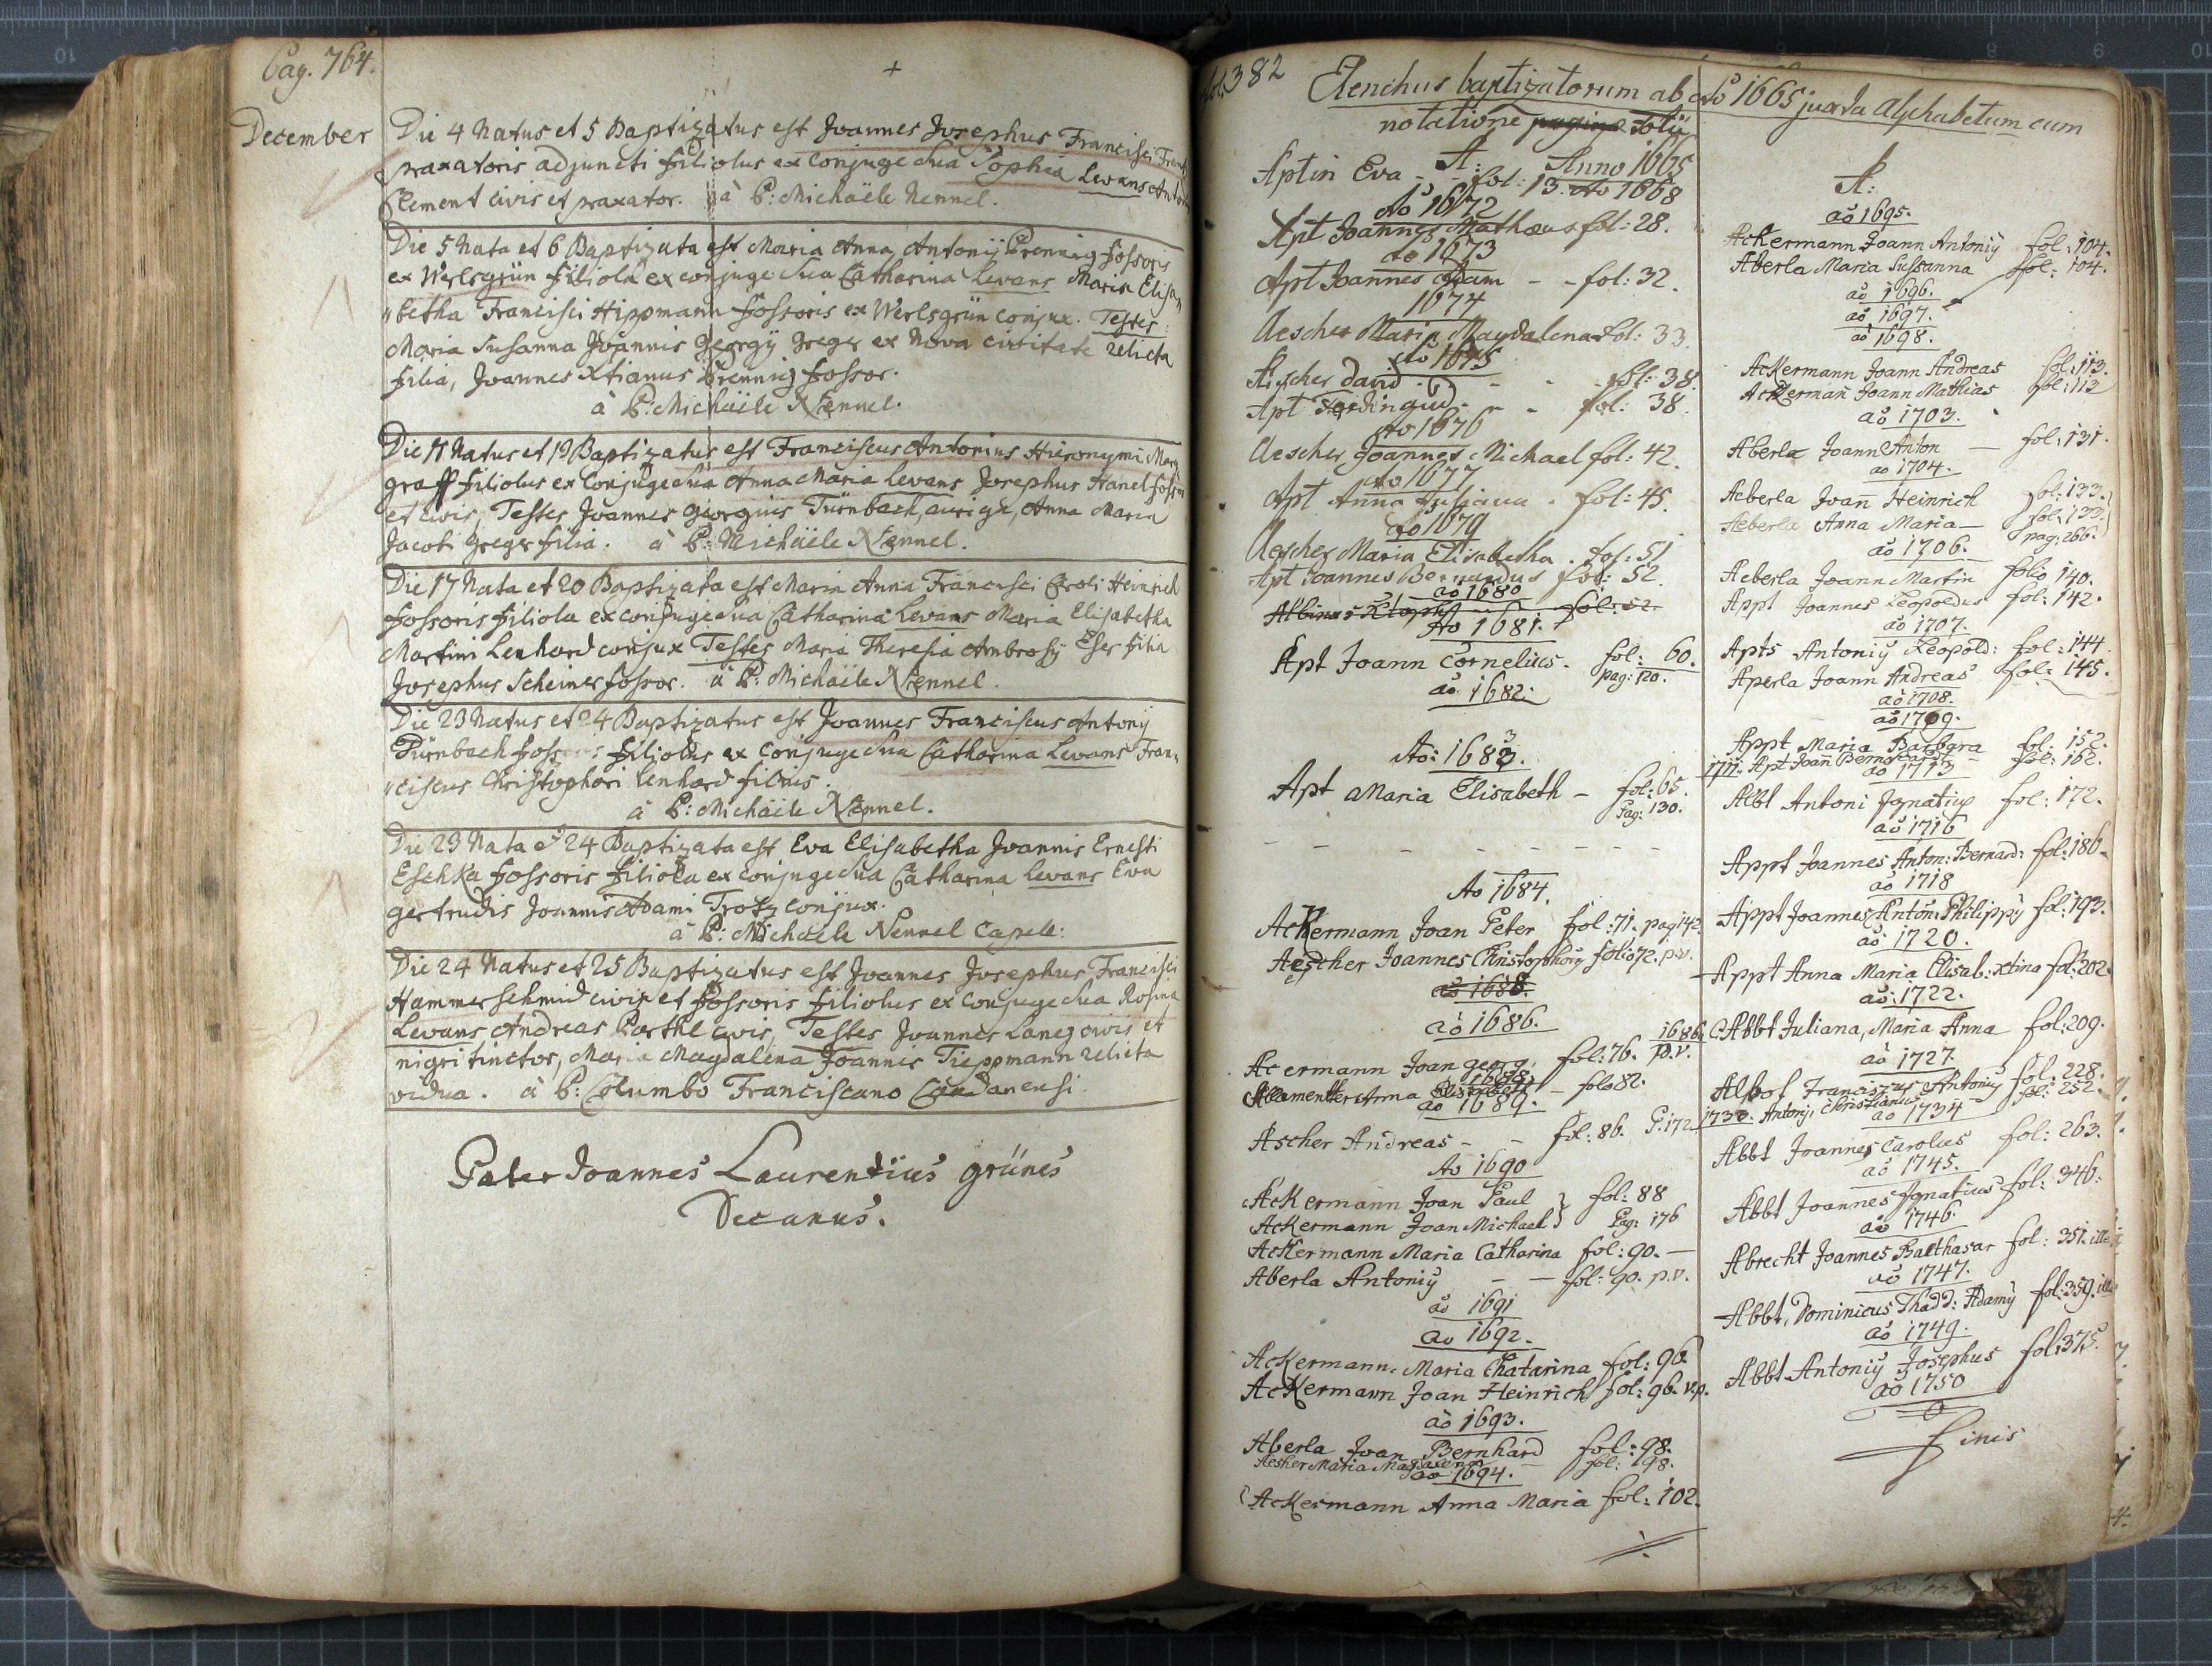 Pag. 764.
December
Die 4 Natus et 5 Baptizatus est Joannes Josephus Francisci
praxatoris adjuncti filiolus ex conjuge sua Sophia Levans Anton
Clement civis et praxator. à P: Michaële Nennel.
Die 5 Nata et 6 Baptizata est Maria Anna Antonij Brennig fossoris
ex Werlsgrün filiola ex conjuge sua Catharina Levans Maria Elisa
"betha Francisci Hippmann fossoris ex Werlsgrün conjux. Testes:
Maria Susanna Joannis Georgij Greger ex Nova civitate relicta
filia, Joannes Xtianus Brennig fossor.
à P: Michäele Nennel.
Die Natus et 19 Baptizatus est Franciscus Antonius Hieronymi Marg
graff filiolus ex Conjuge sua Anna Maria Levans Josephus Hanel
et civis, Testes Joannes Georgius Türnbach, auriga, Anna Maria
Jacobi Greger filia. à P: Michäele Nennel.
Die 17 Nata et 20 Baptizata est Maria Anna Francisci Caroli Heinrich
fossoris filiola ex conjuge sua Catharina Levans Maria Elisabetha
Martini Lenhard conjux Testes Maria Theresia Ambrosij Eser filia
Josephus Scheiner fossor. à P: Michäele Nennel.
Die 23 Natus et 24 Baptizatus est Joannes Franciscus Antonij
Pürnbach filiolus ex Conjuge sua Catharina Levans Fran„
"ciscus Christophori Lenhard filius.
à P: Michäele Nennel.
Die 23 Nata et 24 Baptizata est Eva Elisabetha Joannis Ernesti
Eschka fossoris filiola ex conjuge sua Catharina Levans Eva
gertrudis Joannis Adami Trotz conjux.
à P: Michäele Nennel Capell:
Die 24 Natus et 25 Baptizatus est Joannes Josephus Francisci
Hammerschmid civis et fossoris filiolus ex conjuge sua Rosina
Levans Andreas Parthl civis, Testes Joannes Laneg civis et
nigri tinctor, Maria Magdalena Joannis Tieppmann relicta
vidua. à P: Columbo Franciscano Cadanensi.
Pater Joannes Laurentius Grünes
Decanus.
fol. 382
Elenchus baptizatorum ab ao 1665 juxta Alphabetum cum
notatione paginae folii
A: Anno 1665
Aptin Eva - - fol: 13. Ao 1668
Ao 1672
Apt Joannes Mathaeus fol: 28.
ao 1673
Apt Joannes Adam - - fol: 32.
1674
Aescher Maria Magdalena fol: 33.
Ao 1675
Aescher David - - - fol: 38.
Apt Ferdinand - - fol: 38.
Ao 1676
Aescher Joannes Michael fol: 42.
Ao 1677
Apt Anna fol: 45.
ao 1679
Aescher Maria Elisabetha. fol: 51
Apt Joannes Bernardus fol: 52.
ao 1680
Albinus Xtoph fol: 52.
Ao 1681.
Apt Joann Cornelius. fol: 60.
pag: 120.
ao 1682.
Ao: 1683.
Apt Maria Elisabeth - fol: 65.
Pag: 130.
- - - - - - - -
Ao 1684.
Ackermann Joan Peter fol: 71. pag 142.
Aescher Joannes Christophorg folio 72. p.v.
ao 1688.
ao 1686.
Acermann Joan georg. fol: 76. p.v.
1688.
Anna Elisabeth - folo 82.
ao 1689.
Ascher Andreas - - fol: 86. P. 172.
Ao 1690
Ackermann Joan Paul } fol: 88
Ackermann Joan Michael } Pag: 176
Ackermann Maria Catharina fol: 90. —
Aberla Antonij - — fol: 90. p.v.
ao 1691
ao 1692.
Ackermann Maria Chatarina fol: 96.
Ackermann Joan Heinrich fol: 96. v.p.
ao 1693.
Aberla Joan Bernhard fol: 98.
Aesher Maria Magdalena fol: 98.
ao 1694.
Ackermann Anna Maria fol: 102.
A:
ao 1695.
Ackermann Joann Antonij fol: 104.
Aberla Maria Sussanna fol: 104.
ao 1696.
ao 1697.
ao 1698.
Ackermann Joann Andreas fol: 113.
Ackerman Joann Mathias fol: 113
ao 1703.
Aberla Joann Anton — fol: 131.
ao 1704.
Aeberla Joan Heinrich fol: 133.
Aeberla Anna Maria — fol: 133.
pag: 266.
ao 1706.
Aeberla Joann Martin folio 140.
Appt Joannes Leopoldus fol: 142.
ao 1707.
Apts Antonij Leopold: fol: 144.
Aperla Joann Andreas fol: 145.
ao 1708.
ao 1709.
Appt Maria Barbara fol: 152.
1711. Apt Joan Bernard - fol: 162.
ao 1713
Albt Antoni Jgnatius fol: 172.
ao 1716
Appt Joannes Anton: Bernard: fol: 186.
ao 1718
Appt Joannes Anton: Philippy fol: 193.
ao 1720.
Appt Anna Maria Elisab: Xtina fol: 202.
ao 1722.
1686. Abbt Juliana, Maria Anna fol: 209.
ao 1727.
Franciscus Antonij fol. 228.
Antonj, Christianus fol: 252.
ao 1734
Abbt Joannes Carolus fol: 263.
ao 1745.
Abbt Joannes Jgnatius fol: 346.
ao 1746.
Abrecht Joannes Balthasar fol: 351.
ao 1747.
Abbt, Dominicus Thadd: Adamy fol: 359.
ao 1749.
Abbt Antonij Josephus fol: 375.
ao 1750
0
finis